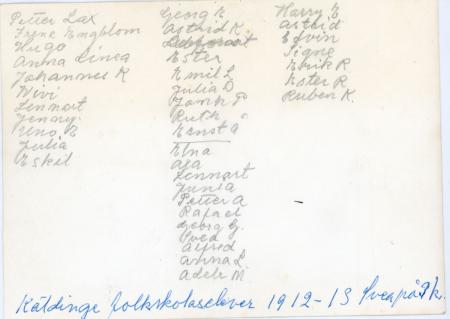 Petter Lax
Fryne Engblom
Hugo
Anna Linea
Johannes K
Wivi
Lennart
Jenny
Uno B
Julia
Eskil
Georg E
Astrid K
Ester
Emil L
Julia D
Ruth
Ernst Ö
Elna
Aja
Lennart
Petter A
Rafael
Georg G.
Sved
Alfred
Anna L.
Adele M
Harry E
Astrid
Edvin
Signe
Erik R
Ester R
Ruben K.
Käldinge folkskolaselever 1912-13